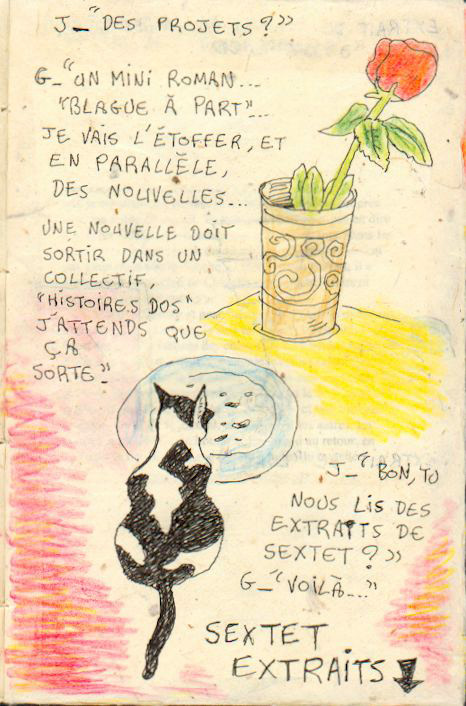 J_"DES PROJETS?"
G_"UN MINI ROMAN...
"BLAGUE À PART"...
JE VAIS L'ÉTOFFER, ET
EN PARALLÈLE,
DES NOUVELLES...
UNE NOUVELLE DOIT
SORTIR DANS UN
COLLECTIF,
"HISTOIRES DOS"
J'ATTENDS QUE
ÇA
SORTE_"
J_"BON, TU
NOUS LIS DES
EXTRAITS DE
SEXTET?"
G_"VOILÀ..."
SEXTET
EXTRAITS